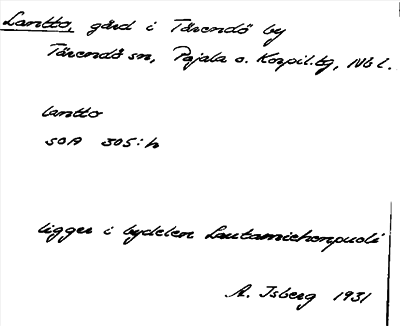 Lantto, gård i Tärendö by
Tärendö sn, Pajala o. Korpil. tg, Nb l.
lantto
SOA 305:h
ligger i bydelen Lautamiehenpuoli
A. Isberg 1931